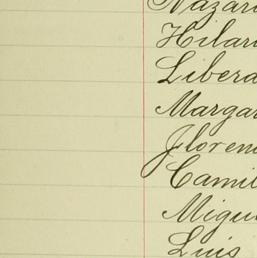 Nazari
Hilari
Libera
Margar
Floren
Camil
Migu
Luis